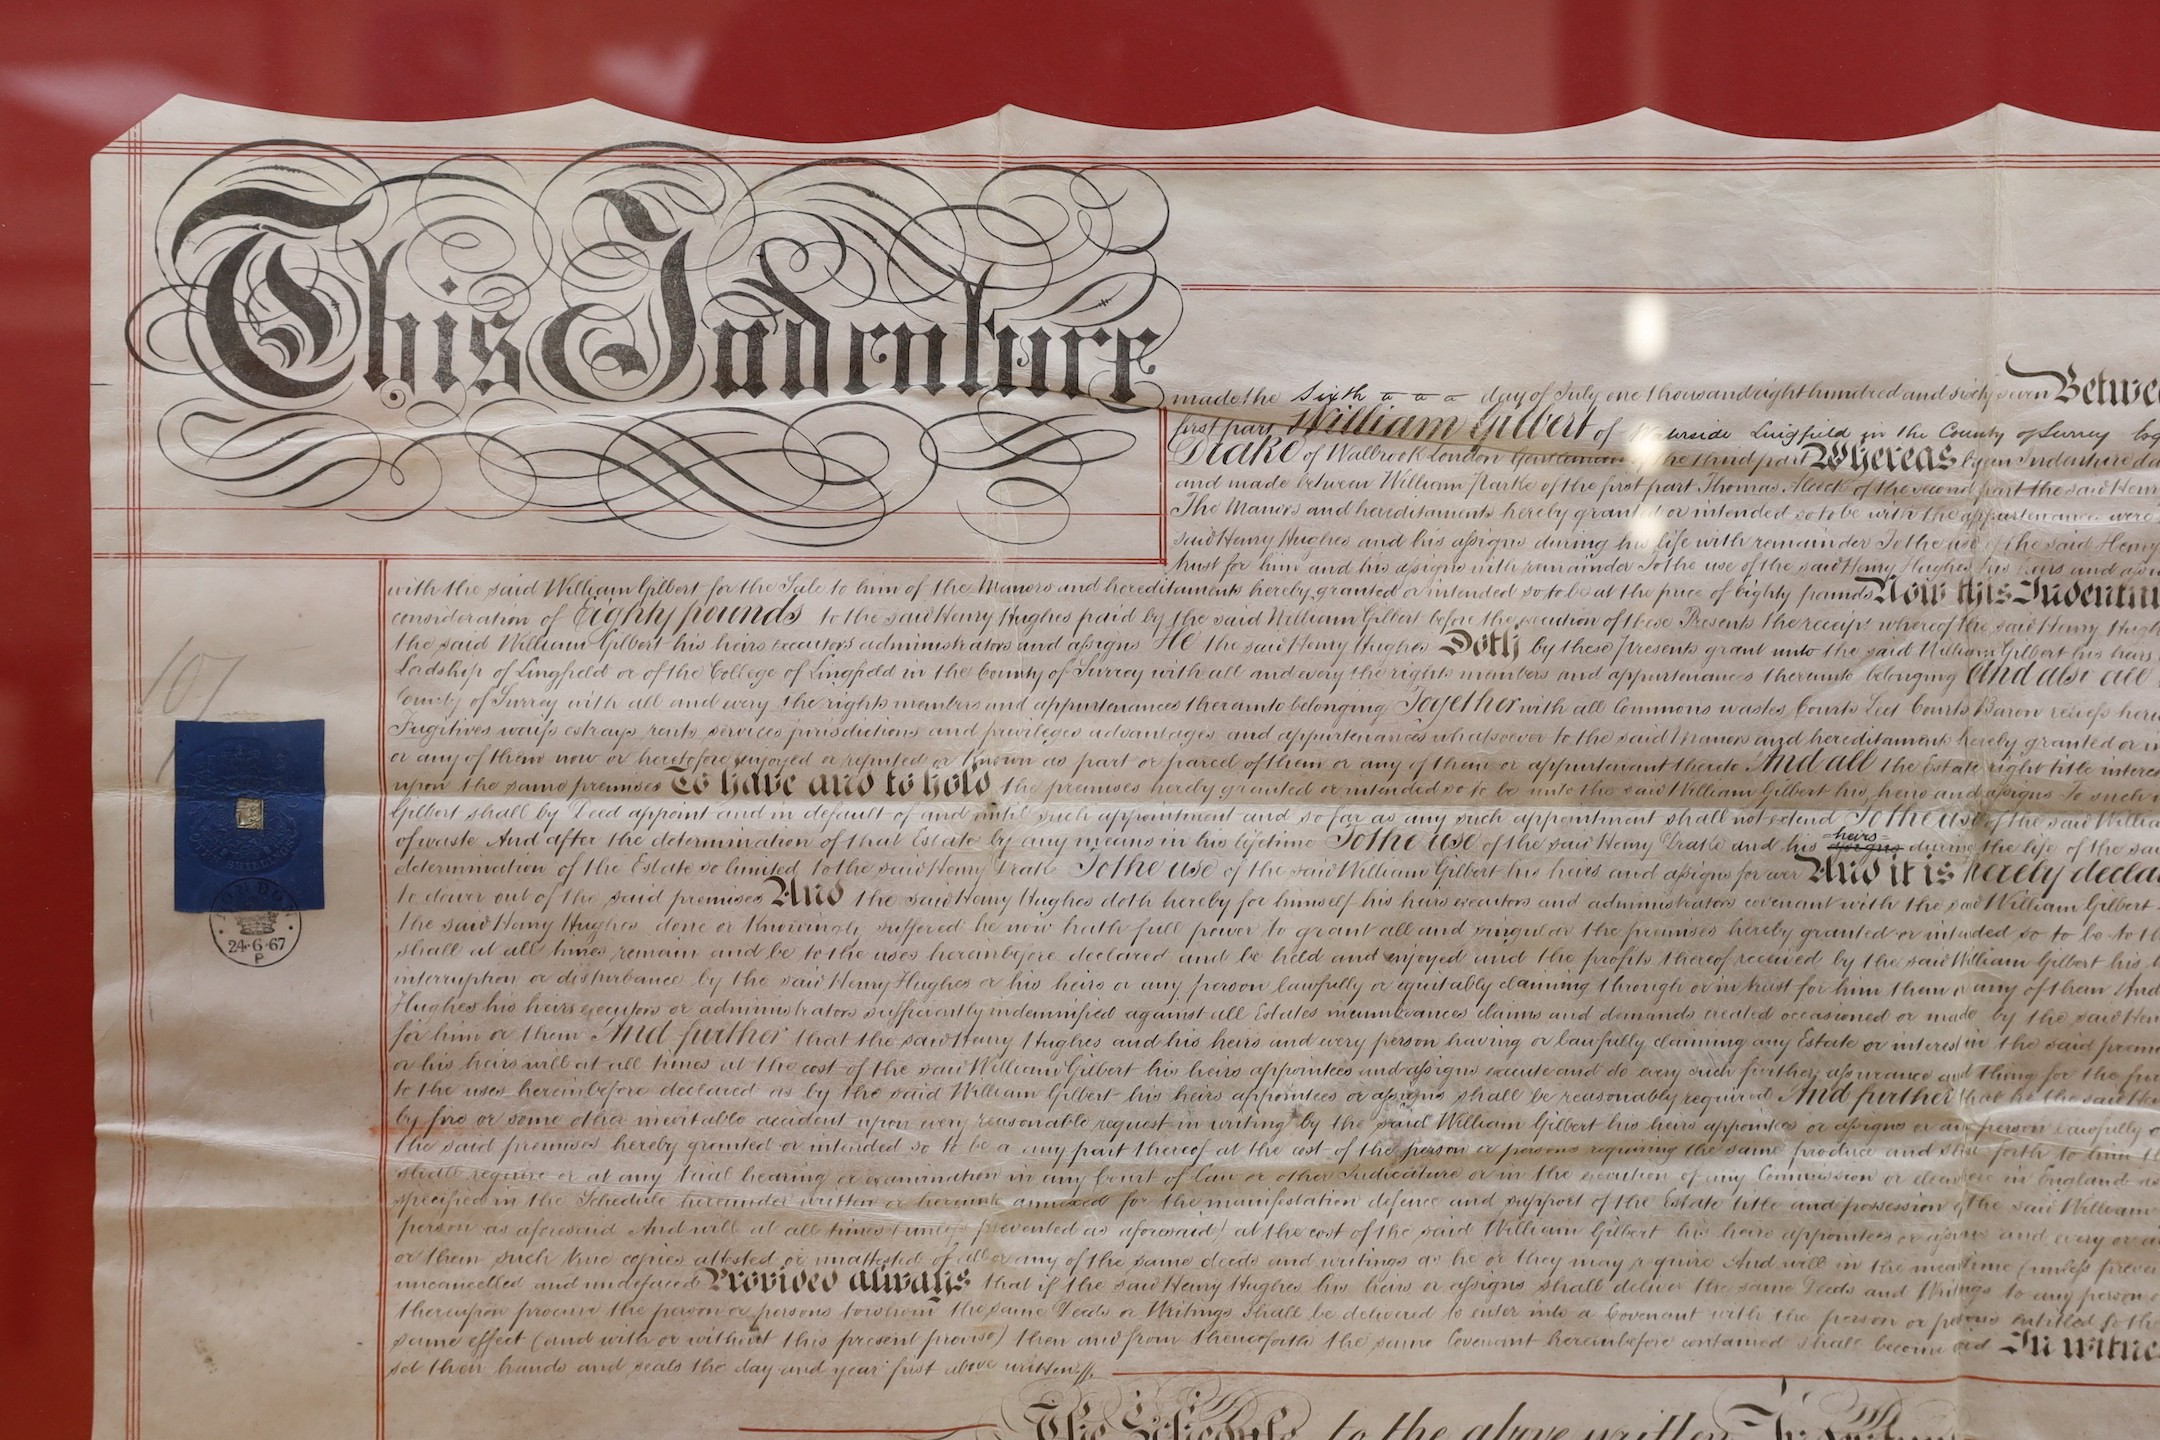 This Indenture
made the Sixth day of July one thousand eight hundred and sixty seven Betwe
first part William Gilbert of Lingfield in the County of Surrey
Drake of Wallrock London Gentleman of the third part Whereas by an Indenture da
and made between William Parke of the first part Thomas Aleck of the second part the said Henry
The Manors and hereditaments hereby granted or intended so to be with the appurtenances were
said Henry Hughes and his assigns during his life with remainder To the use of the said Henry
trust for him and his assigns with remainder To the use of the said Henry Hughes his heirs and assi
with the said William Gilbert for the Sale to him of the Manors and hereditaments hereby granted or intended so to be at the price of Eighty pounds Now this Indentur
consideration of Eighty pounds to the said Henry Hughes paid by the said William Gilbert before the execution of these Presents the receipt whereof the said Henry Hugh
the said William Gilbert his heirs executors administrators and assigns He the said Henry Hughes Doth by these Presents grant unto the said William Gilbert his heirs
Lordship of Lingfield or of the College of Lingfield in the County of Surrey with all and every the rights members and appurtenances thereunto belonging And also all
County of Surrey with all and every the rights members and appurtenances thereunto belonging Together with all Commons wastes Courts Leet Courts Baron reliefs heri
Fugitives waifs estrays rents services jurisdictions and privileges advantages and appurtenances whatsoever to the said Manors and hereditaments hereby granted or in
or any of them now or heretofore enjoyed or reputed or known as part or parcel of them or any of them or appurtenant thereto And all the Estate right title interes
upon the same premises To have and to hold the premises hereby granted or intended so to be unto the said William Gilbert his heirs and assigns To such
Gilbert shall by Deed appoint and in default of and until such appointment and so far as any such appointment shall not extend To the use of the said Willia
of waste And after the determination of that Estate by any means in his lifetime To the use of the said Henry Drake and his heirs assigns during the life of the sai
determination of the Estate so limited to the said Henry Drake To the use of the said William Gilbert his heirs and assigns for ever And it is hereby declar
to dower out of the said premises And the said Henry Hughes doth hereby for himself his heirs executors and administrators covenant with the said William Gilbert
the said Henry Hughes done or knowingly suffered he now hath full power to grant all and singular the premises hereby granted or intended so to be to th
shall at all times remain and be to the uses hereinbefore declared and be held and enjoyed and the profits thereof received by the said William Gilbert his h
interruption or disturbance by the said Henry Hughes or his heirs or any person lawfully or equitably claiming through or in trust for him them or any of them And
Hughes his heirs executors or administrators sufficiently indemnified against all Estates incumbrances claims and demands created occasioned or made by the said Hen
for him or them And further that the said Henry Hughes and his heirs and every person having or lawfully claiming any Estate or interest in the said premi
or his heirs will at all times at the cost of the said William Gilbert his heirs appointees and assigns execute and do every such further assurance and thing for the fur
to the uses hereinbefore declared as by the said William Gilbert his heirs appointees or assigns shall be reasonably required And further that he the said Hen
by fire or some other inevitable accident upon every reasonable request in writing by the said William Gilbert his heirs appointees or assigns or any person lawfully c
the said premises hereby granted or intended so to be or any part thereof at the cost of the person or persons requiring the same produce and shew forth to him th
shall require or at any trial hearing or examination in any Court of Law or other Judicature or in the execution of any Commission or elsewhere in England
specified in the Schedule hereunder written or hereunto annexed for the manifestation defence and support of the Estate title and possession of the said William
person as aforesaid And will at all times (unless prevented as aforesaid) at the cost of the said William Gilbert his heirs appointees or assigns and every or a
or them such true copies attested or unattested of all or any of the same deeds and writings as he or they may require And will in the meantime (unless preven
uncancelled and undefaced Provided always that if the said Henry Hughes his heirs or assigns shall deliver the same Deeds and Writings to any person o
thereupon procure the person or persons to whom the same Deeds or Writings shall be delivered to enter into a Covenant with the person or persons entitled to the
same effect (and with or without this present proviso) then and from thenceforth the same Covenant hereinbefore contained shall become void In witne
set their hands and seals the day and year first above written
The Schedule to the above written
107
LONDON
24·6·67
P